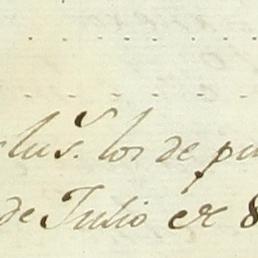 lus. los de pu
de Julio et 8